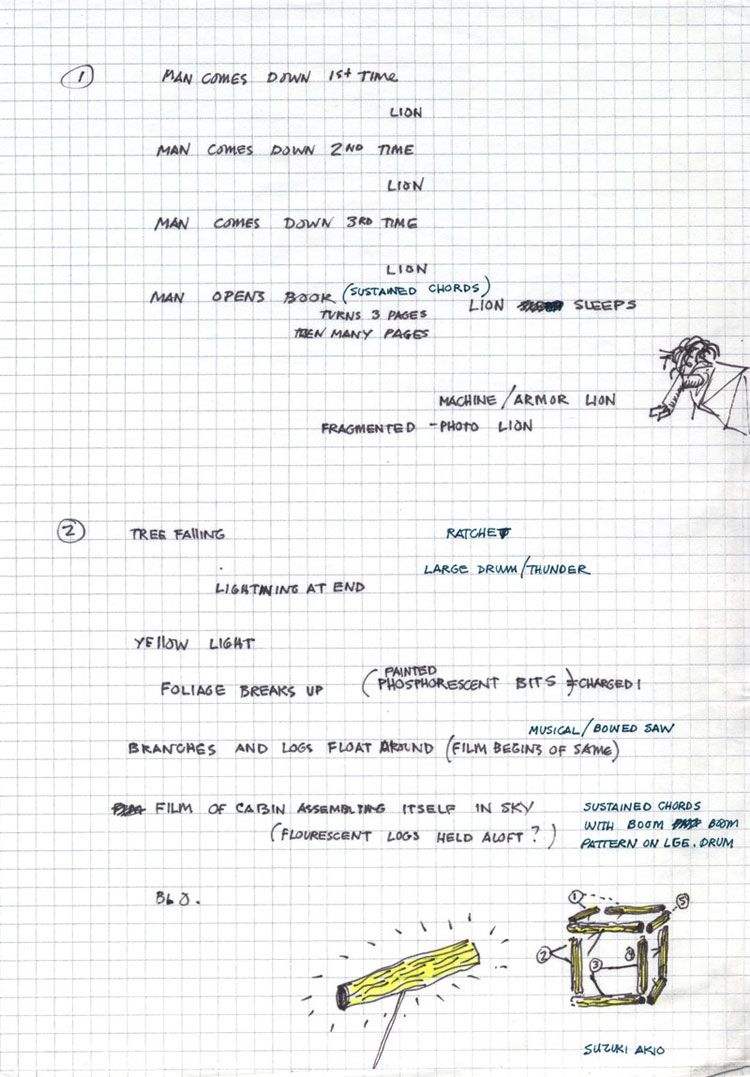 1 MAN COMES DOWN 1st TIME
LION
MAN COMES DOWN 2ND TIME
LION
MAN COMES DOWN 3RD TIME
LION
MAN OPENS BOOK (SUSTAINED CHORDS)
LION SLEEPS
TURNS 3 PAGES
THEN MANY PAGES
MACHINE/ARMOR LION
FRAGMENTED - PHOTO LION
2 TREE FALLING RATCHET
LARGE DRUM/THUNDER
LIGHTNING AT END
YELLOW LIGHT
FOLIAGE BREAKS UP (PAINTED PHOSPHORESCENT BITS) CHARGED!
MUSICAL/BOWED SAW
BRANCHES AND LOGS FLOAT AROUND (FILM BEGINS OF SAME)
FILM OF CABIN ASSEMBLING ITSELF IN SKY
(FLOURESCENT LOGS HELD ALOFT?)
SUSTAINED CHORDS
WITH BOOM BOOM
PATTERN ON LGE. DRUM
1
5
2
3
4
SUZUKI AKIO